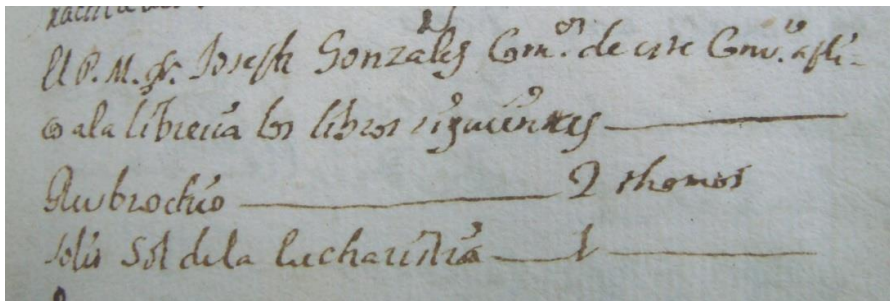 El P. M. fr. Joseph Gonzales Com.or de este Conv.to apli-
co a la libreria los libros siguientes
2 thomos
Solis Sol de la Eucharistia 1